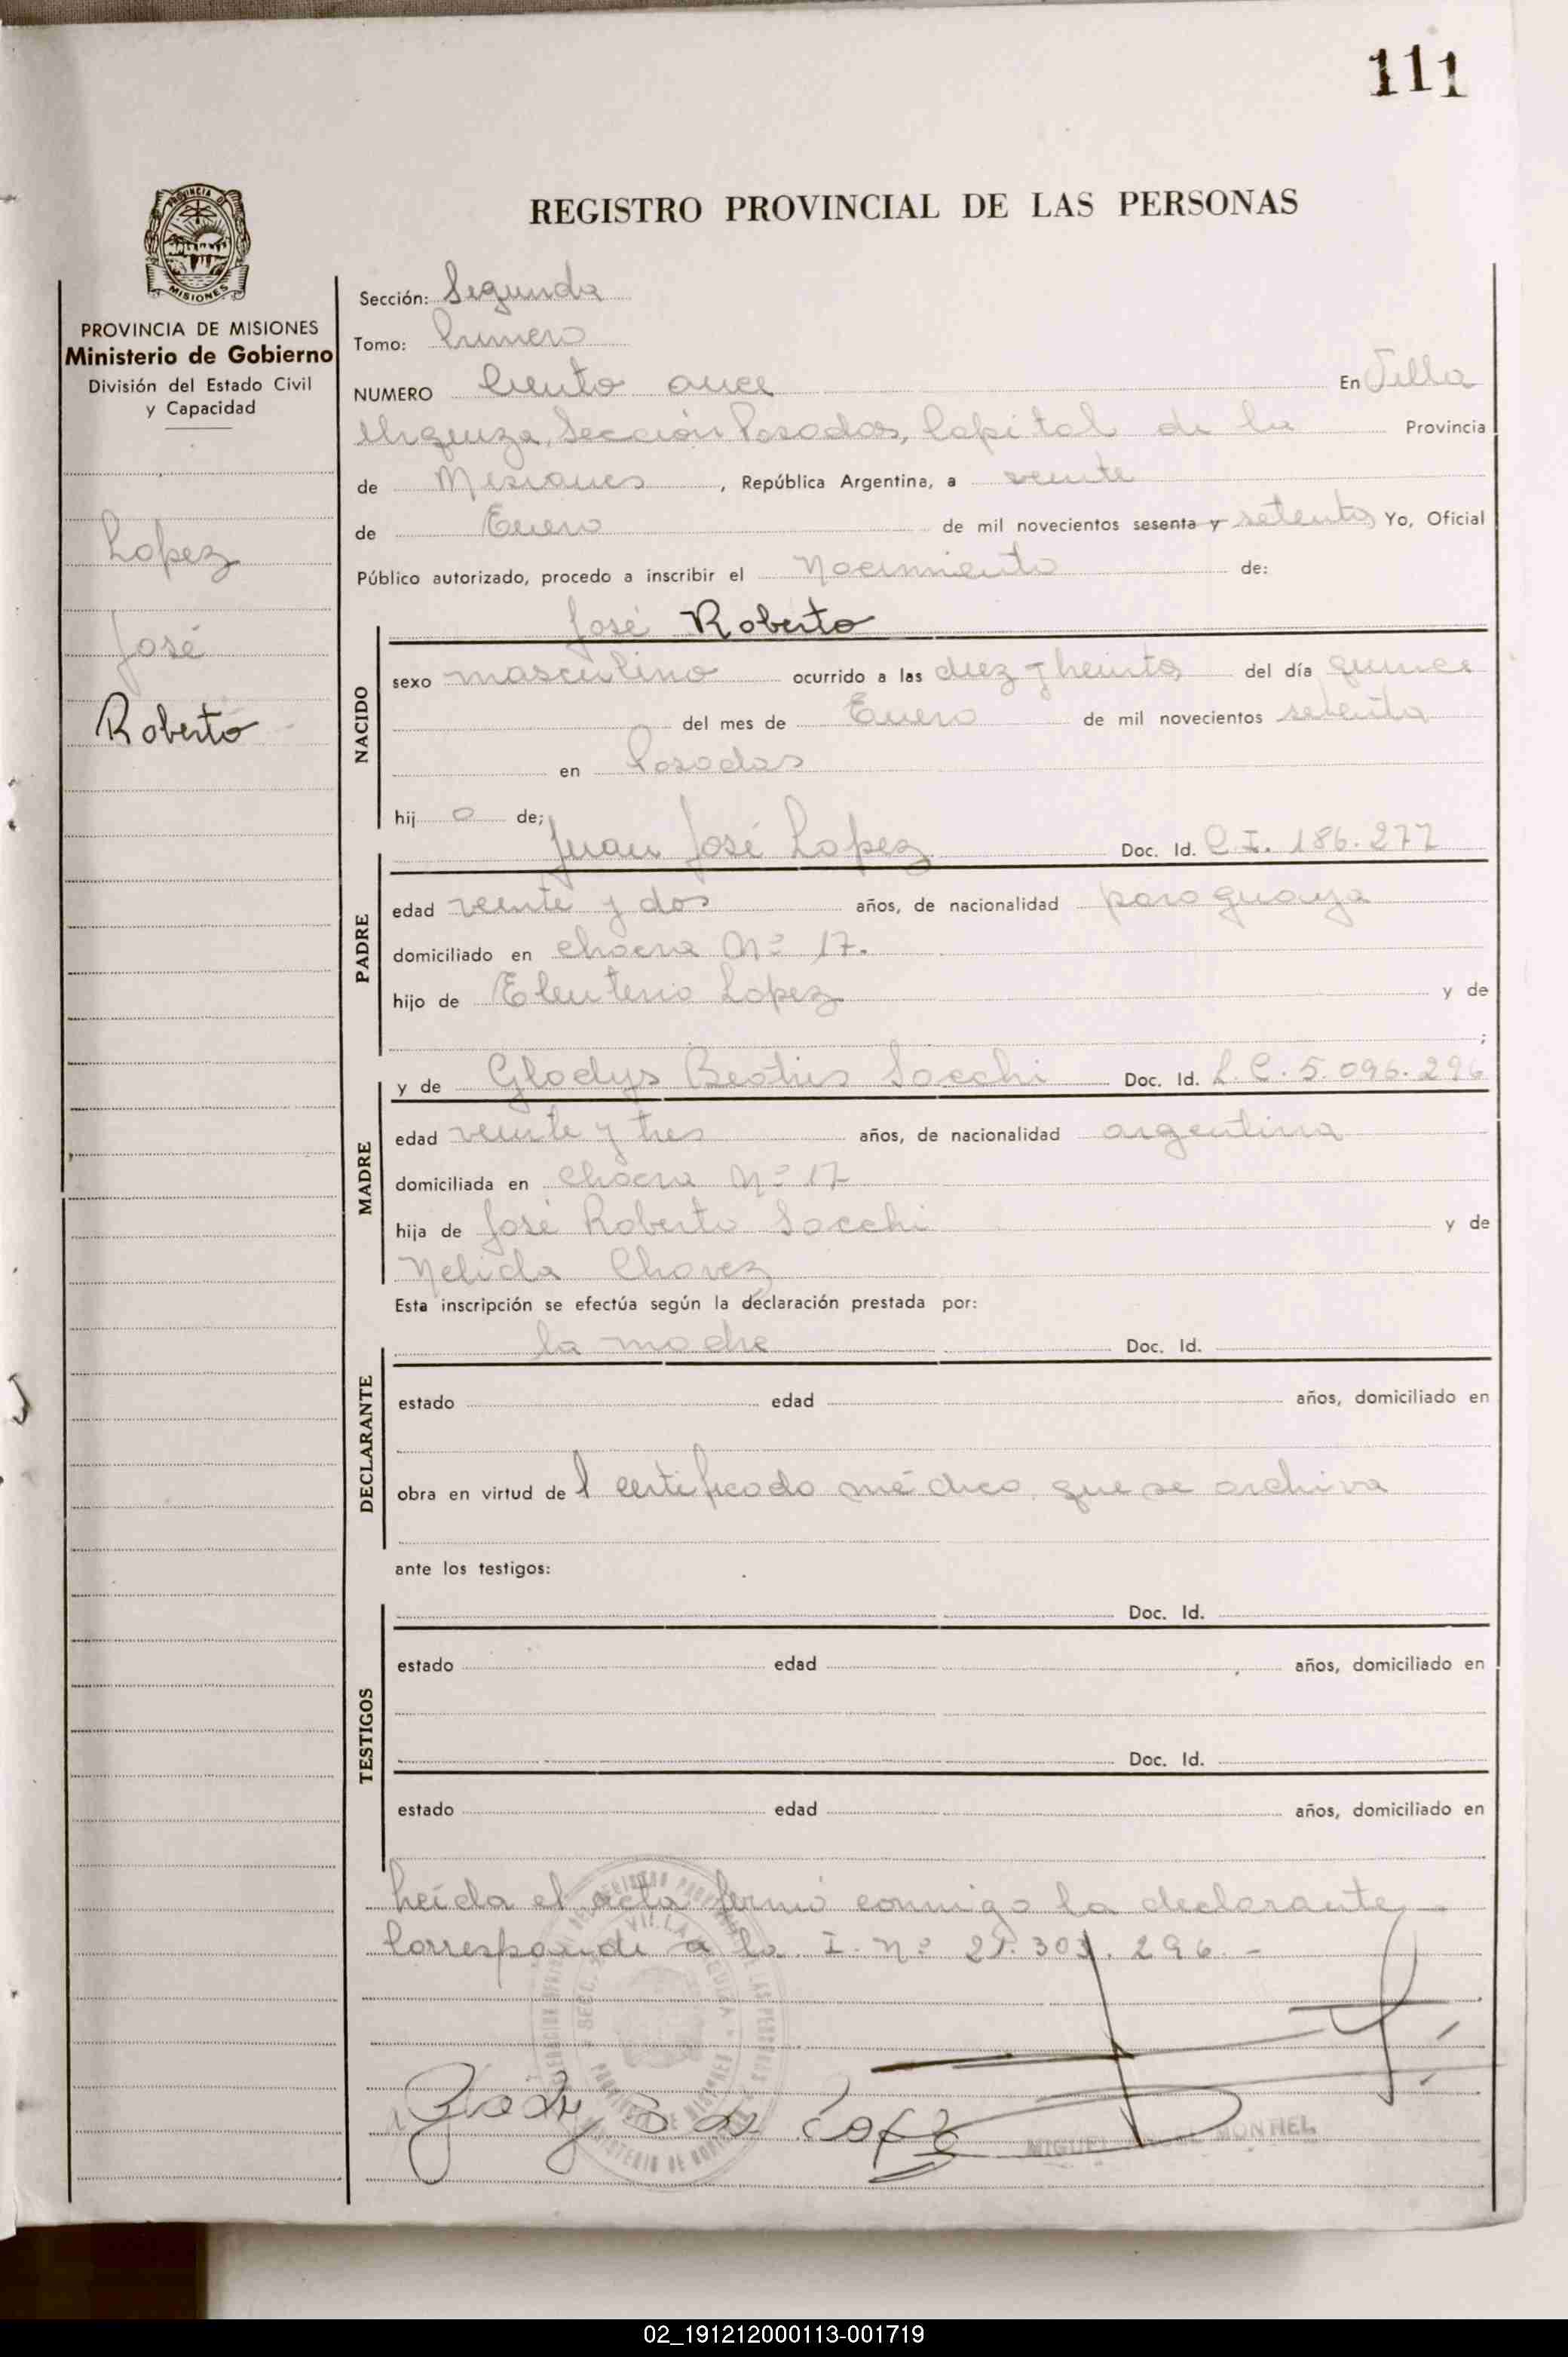 111
REGISTRO PROVINCIAL DE LAS PERSONAS
PROVINCIA DE MISIONES
Ministerio de Gobierno
División del Estado Civil
y Capacidad
Lopez
José
Roberto
Sección: Segunda
Tomo: Primero
NUMERO Ciento once En Villa
Urquiza, Sección Posadas, Capital de la Provincia
de Misiones, República Argentina, a veinte
de Enero de mil novecientos sesenta y setenta Yo, Oficial
Público autorizado, procedo a inscribir el Nacimiento de:
José Roberto
NACIDO
sexo masculino ocurrido a las diez y treinta del día quince
del mes de Enero de mil novecientos setenta
en Posadas
hijo de;
Juan José Lopez Doc. Id. C.I. 186.277
PADRE
edad veinte y dos años, de nacionalidad paraguaya
domiciliado en chacra Nº 17.
hijo de Eleuterio Lopez y de
;
y de Gladys Beatris Sacchi Doc. Id. L.C. 5.096.296
MADRE
edad veinte y tres años, de nacionalidad argentina
domiciliada en Chacra Nº 17
hija de José Roberto Sacchi y de
Nelida Chavez
Esta inscripción se efectúa según la declaración prestada por:
la madre Doc. Id.
DECLARANTE
estado edad años, domiciliado en
obra en virtud del certificado médico que se archiva
ante los testigos:
Doc. Id.
TESTIGOS
estado edad años, domiciliado en
Doc. Id.
estado edad años, domiciliado en
Leida el acta firmó conmigo la declarante,
Corresponde a la I. Nº 21.303.296.-
Gladys S de Lopez
MIGUEL MONTIEL
02_191212000113-001719